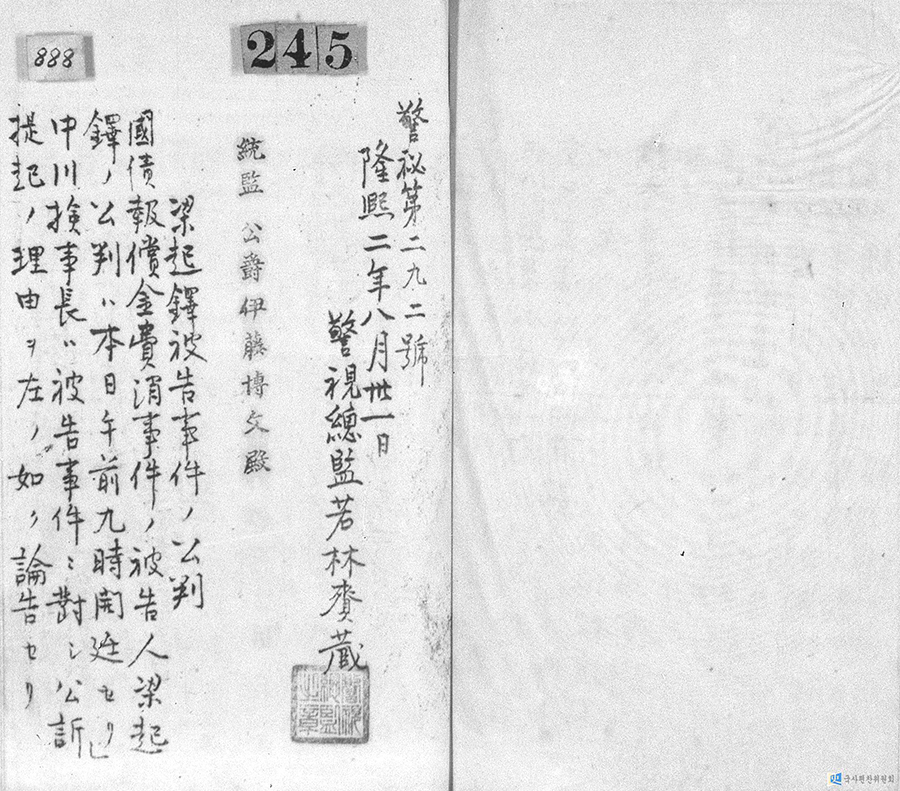 888
245
警秘第二九二號
隆熙二年八月卅一日
警視總監若林賚蔵
統監公爵伊藤博文殿
梁起鐸被告事件ノ公判
國債報償金費消事件ノ被告人梁起
鐸ノ公判ハ本日午前九時開廷セリ
中川検事長ハ被告事件ニ對シ公訴
提起ノ理由ヲ左ノ如ク論告セリ
警視總監之章
국사편찬위원회